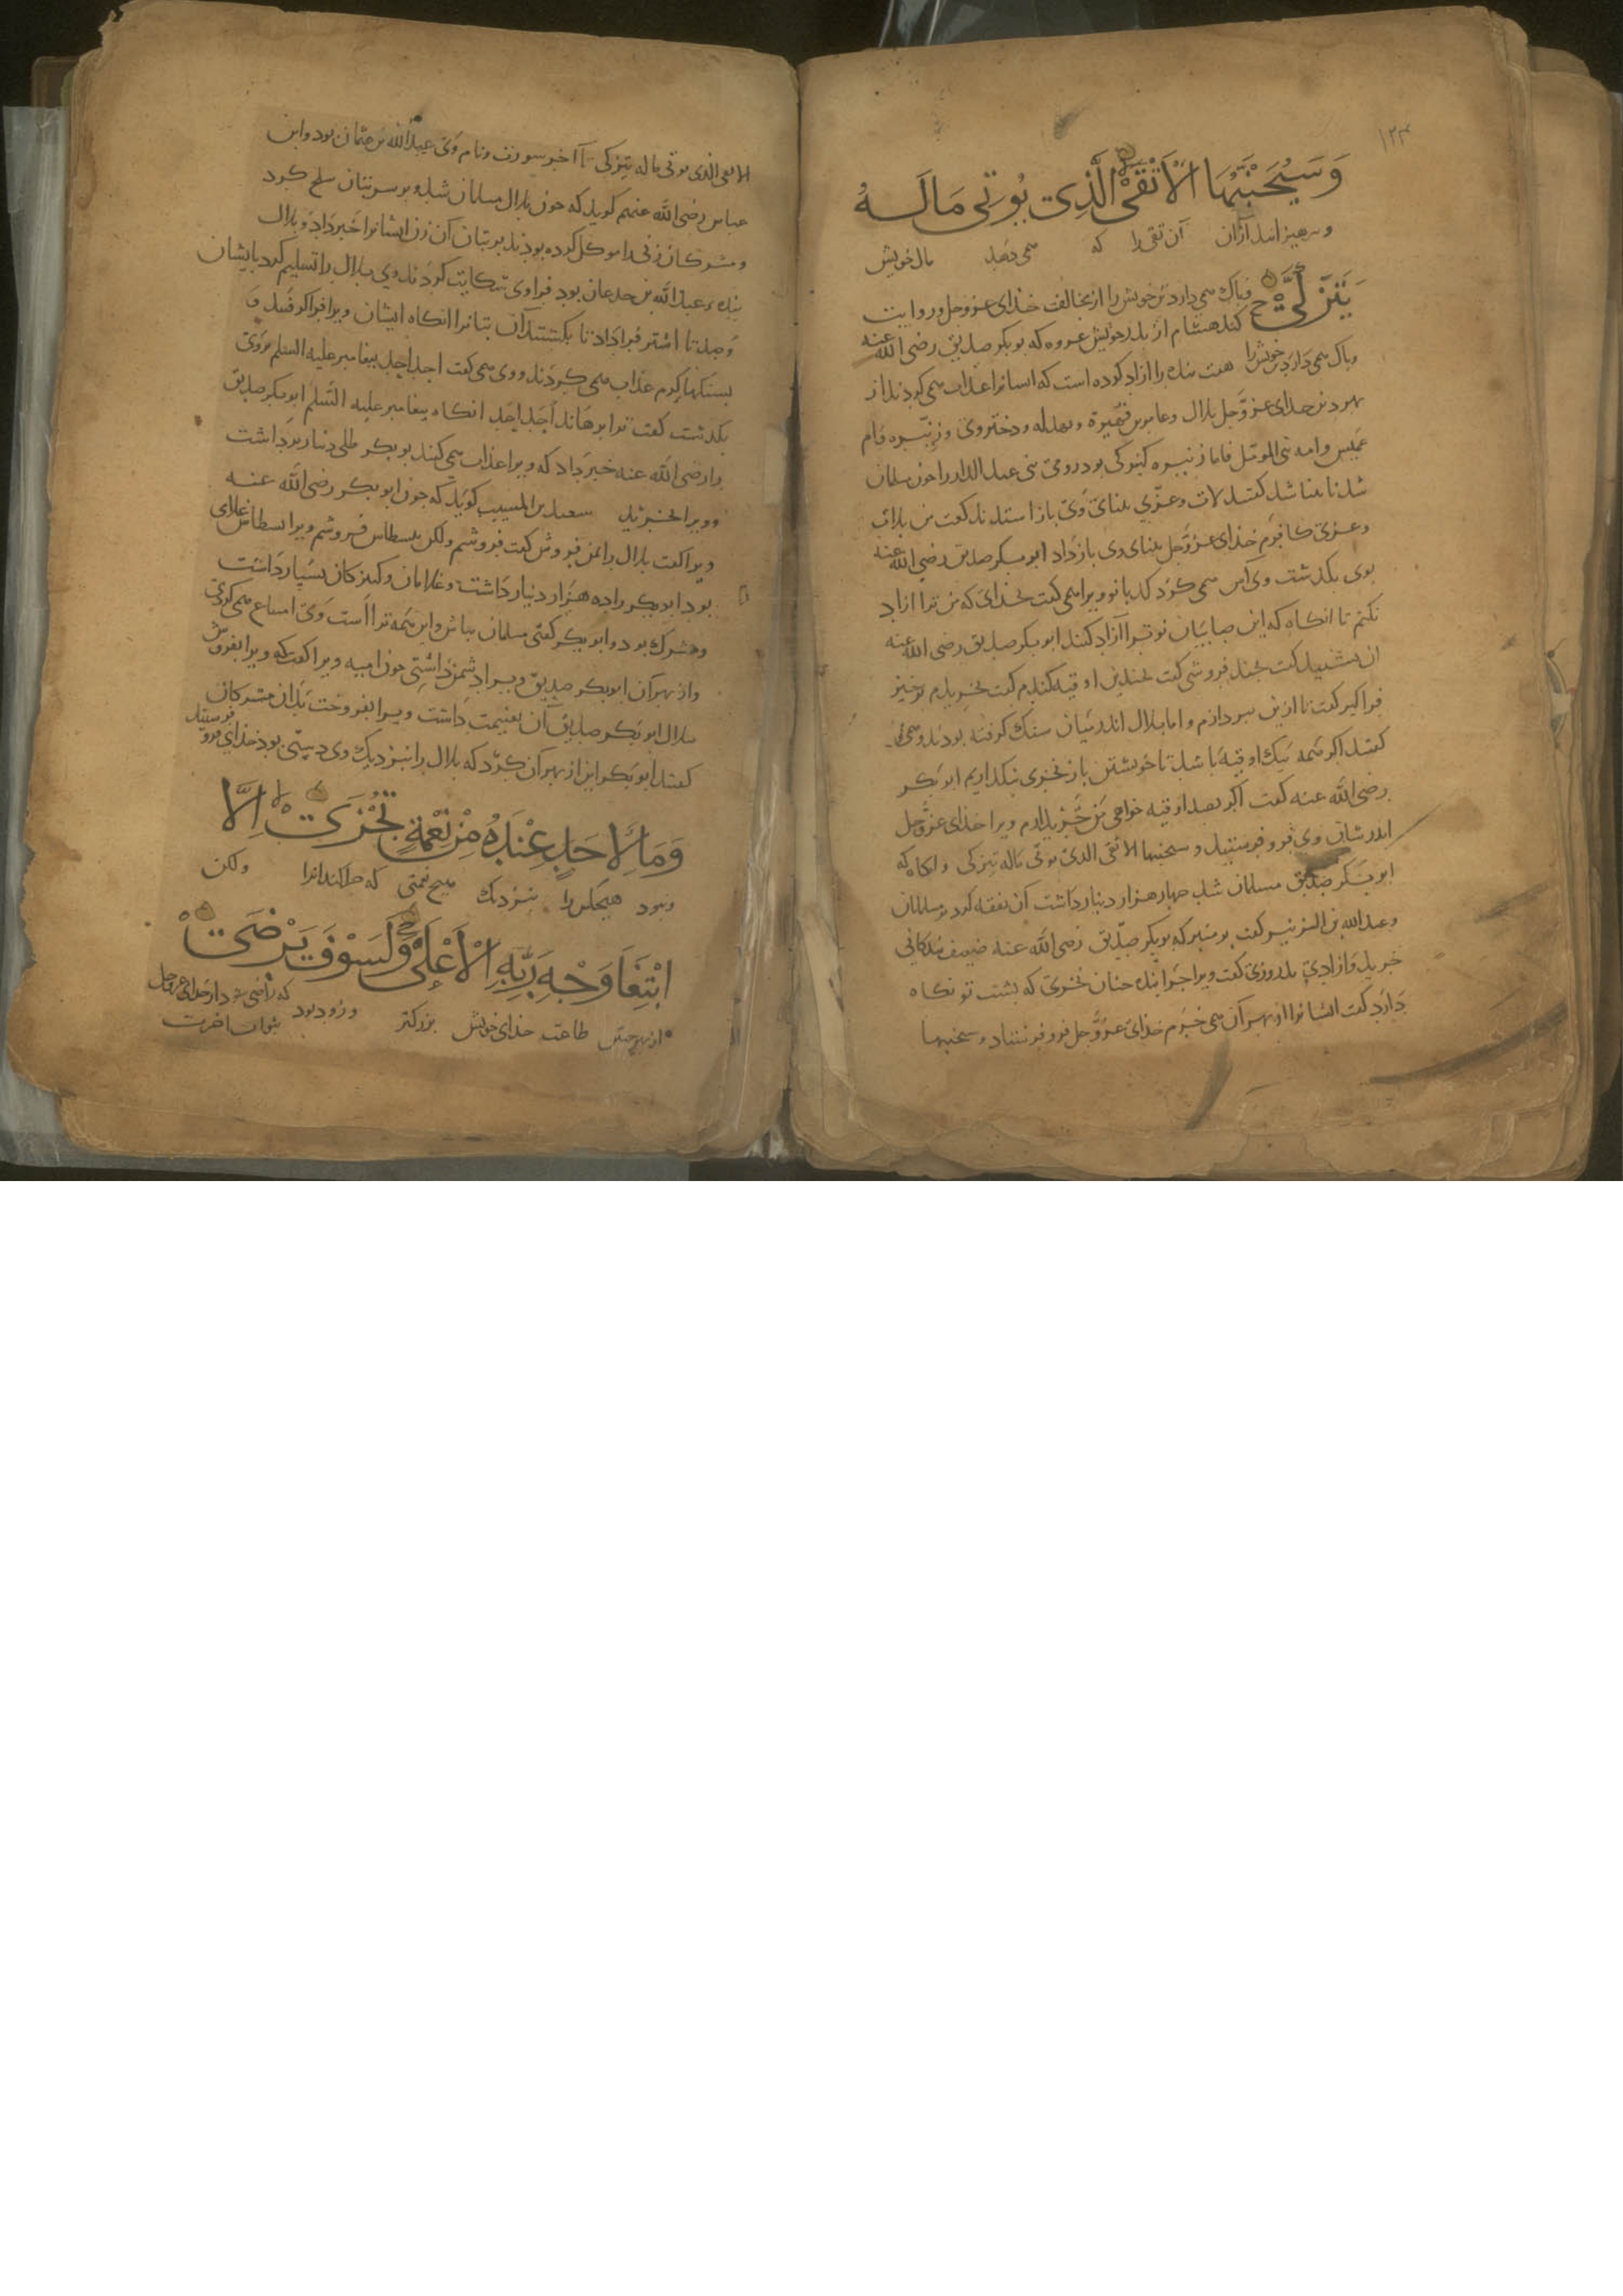 ۱۲۳
وَسَيُجَنَّبُهَا الْاَتْقَى الَّذِي يُوْتِي مَالَهُ
وبرهیزانند ازان آن تقی را که می دهد مال خویش
يَتَزَكَّىٰ و پاک می دارد تن خویش را از مخالفت خذای عزوجل وروایت
کند هشام از پدر خویش عروه که بوبکر صدیق رضی الله عنه
وپاک می دارد تن خویش را هفت بنده را ازاد کرده است که ایشانرا عذاب می کردند از
بهر دین خدای عزوجل بلال وعامر بن فهیرة ونهدیه ودختر وی وزنیره وام
عمیس وامه بنی المومل فاما زنیره کنیزکی بود رومی بنی عبد الدار را چون مسلمان
شد نابینا شد گفتند لات وعزی بینای وی باز استدند گفت من بلات
وعزی کافرم خذای عزوجل بینای وی باز داد ابوبکر صدیق رضی الله عنه
بوی بگذشت وی آس می کرد کدبانو ویرا می گفت بخدای که من ترا ازاد
نکنم تا انگاه که این صابیان تو ترا آزاد کنند ابوبکر صدیق رضی الله عنه
ان بشنید گفت بچند فروشی گفت بچندین اوقیه گندم گفت بخریدم برخیز
فراگیر گفت تا ازین بپردازم واما بلال اندر میان سنگ گرفته بودند ومی
گفتند اگر همه بیک اوقیه باشد تا خویشتن باز نخری نگذاریم ابوبکر
رضی الله عنه گفت اگر بصد اوقیه خواهی من خریدارم ویرا خدای عزوجل
اندر شان وی فرو فرستید وسیجنبها الاتقی الذی یوتی ماله یتزکی وانگاه که
ابوبکر صدیق مسلمان شد چهار هزار دینار داشت آن نفقه کرد بر مسلمانان
وعبدالله بن الزبیر گفت بر منبر که بوبکر صدیق رضی الله عنه ضعیف بندگانی
خرید وازادی پدر وزی گفت ویرا چرا بنده چنان نخری که پشت تو نگاه
دارد گفت ایشانرا از بهر آن می خرم خذای عزوجل فرو فرستاد وسیجنبها
الاتقی الذی یوتی ماله یتزکی تا آخر سورت ونام وی عبدالله بن عثمان بود وابن
عباس رضی الله عنهم گوید که چون بلال مسلمان شد وبر سر بتان سلح کرد
ومشرکان زنی را موکل کرده بودند بر بتان آن زن ایشانرا خبر داد وبلال
بنده عبدالله بن جدعان بود فرا وی شکایت کردند وی بلال را تسلیم کرد بایشان
وصد تا اشتر فرا داد تا بکشتند آن بتانرا انگاه ایشان ویرا فراگرفتند و
بسنگهای گرم عذاب می کردند ووی می گفت احد احد پیغامبر علیه السلم بروی
بگذشت گفت ترا برهاند احد احد انگاه پیغامبر علیه السلم ابوبکر صدیق
را رضی الله عنه خبر داد که ویرا عذاب می کنند بوبکر طلی دینار برداشت
وویرا بخرید سعید بن المسیب گوید که چون ابوبکر رضی الله عنه
ویرا گفت بلال را بمن فروش گفت فروشم ولکن بسطاس فروشم ویرا بسطاس غلامی
بود ابوبکر را ده هزار دینار داشت وغلامان وکنیزکان بسیار داشت
ومشرک بود وابوبکر گفتی مسلمان باش واین همه ترا است وی امتناع می کردی
واز بهر آن ابوبکر صدیق ویرا دشمن داشتی چون امیه ویرا گفت که ویرا بفروش
ببلال ابوبکر صدیق آن بغنیمت داشت ویرا بفروخت بدان مشرکان
گفتند ابوبکر این از بهر آن کرد که بلال را بنزدیک وی دستی بود خذای فرو فرستید
وَمَا لِاَحَدٍ عِنْدَهُ مِنْ نِعْمَةٍ تُجْزَىٰ اِلَّا
ونبود هیچکس را بنزدیک هیچ نعمتی که جزا کنند انرا ولکن
ابْتِغَا وَجْهِ رَبِّهِ الْاَعْلَىٰ وَلَسَوْفَ يَرْضَىٰ
از بهر جستن طاعت خذای خویش بزرکتر وزود بود که راضی شود از خدای عزوجل
بثواب اخرت